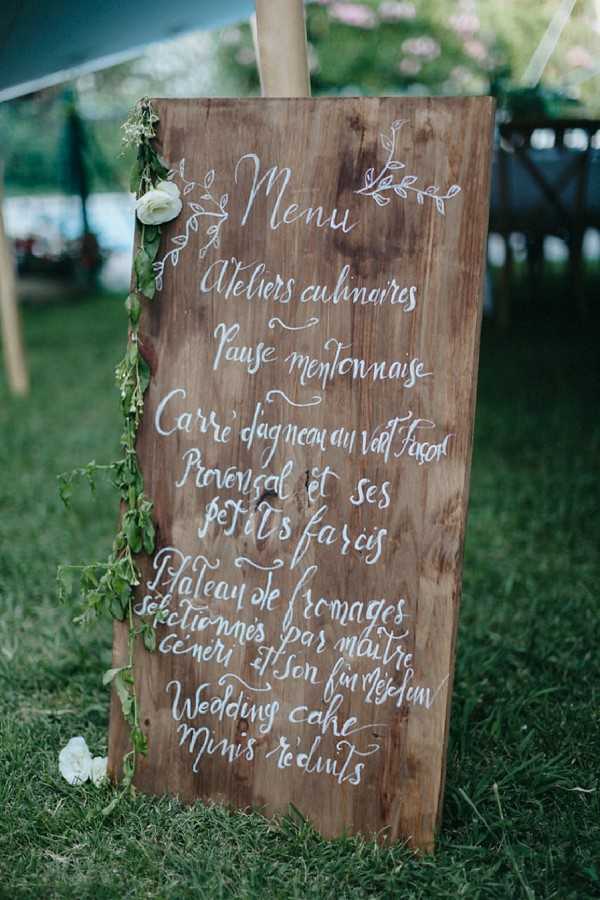 Menu
Ateliers culinaires
Pause mentonnaise
Carré d'agneau au vert Façon
Provençal et ses
petits farcis
Plateau de fromages
sélectionnés par maître
Céneri et son fin Mesclun
Wedding cake
Minis réduits